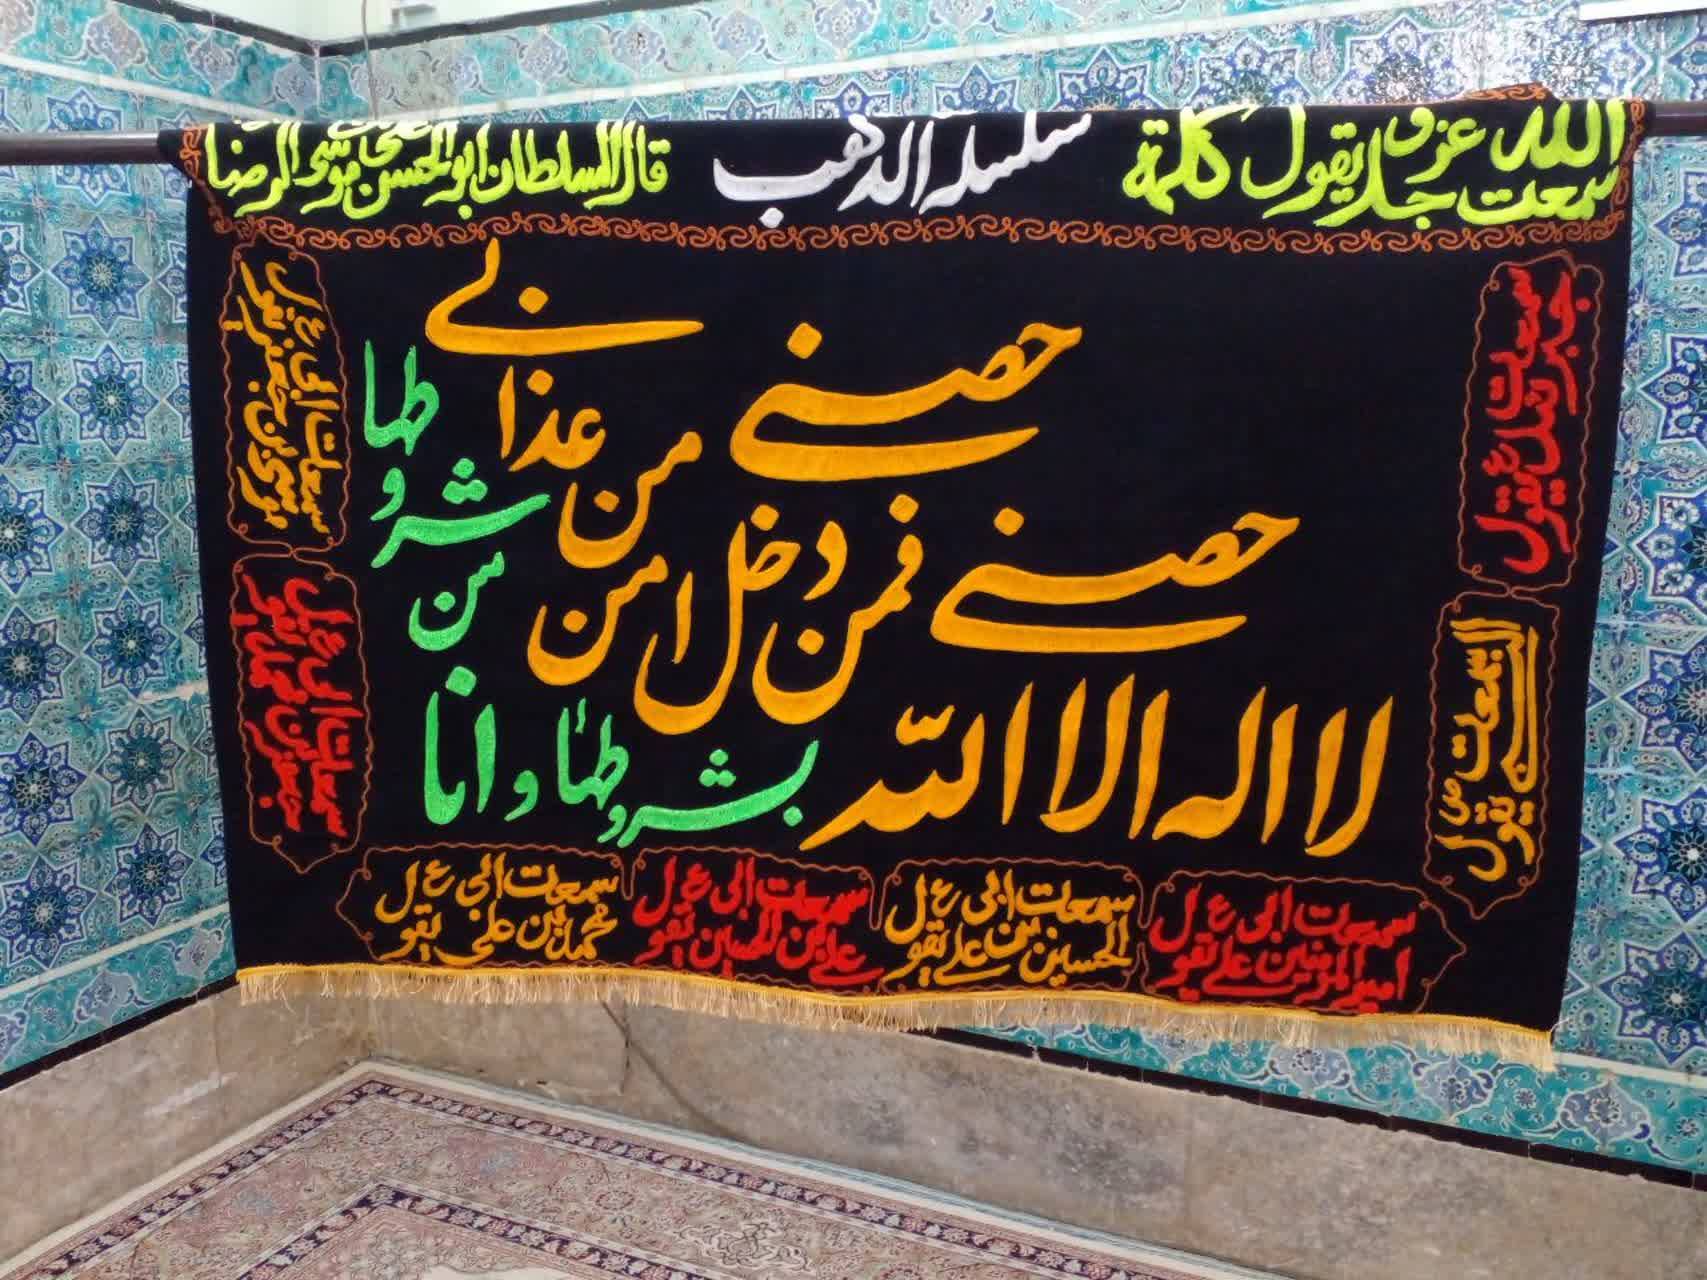 قال السلطان ابوالحسن علی بن موسی الرضا
سلسلة الذهب
سمعت الله عزو جل یقول کلمة
لا اله الا الله
حصنی فمن دخل
حصنی امن من عذابی
بشروطها و انا
من شروطها
سمعت ابی ع یقول
موسی بن جعفر یقول
سمعت ابی ع یقول
جعفر بن محمد یقول
سمعت ابی ع یقول
محمد بن علی یقول
سمعت ابی ع یقول
علی بن الحسین یقول
سمعت ابی ع یقول
الحسین بن علی یقول
سمعت ابی ع یقول
امیرالمؤمنین علی یقول
سمعت من
النبی یقول
سمعت
جبرئیل ع یقول